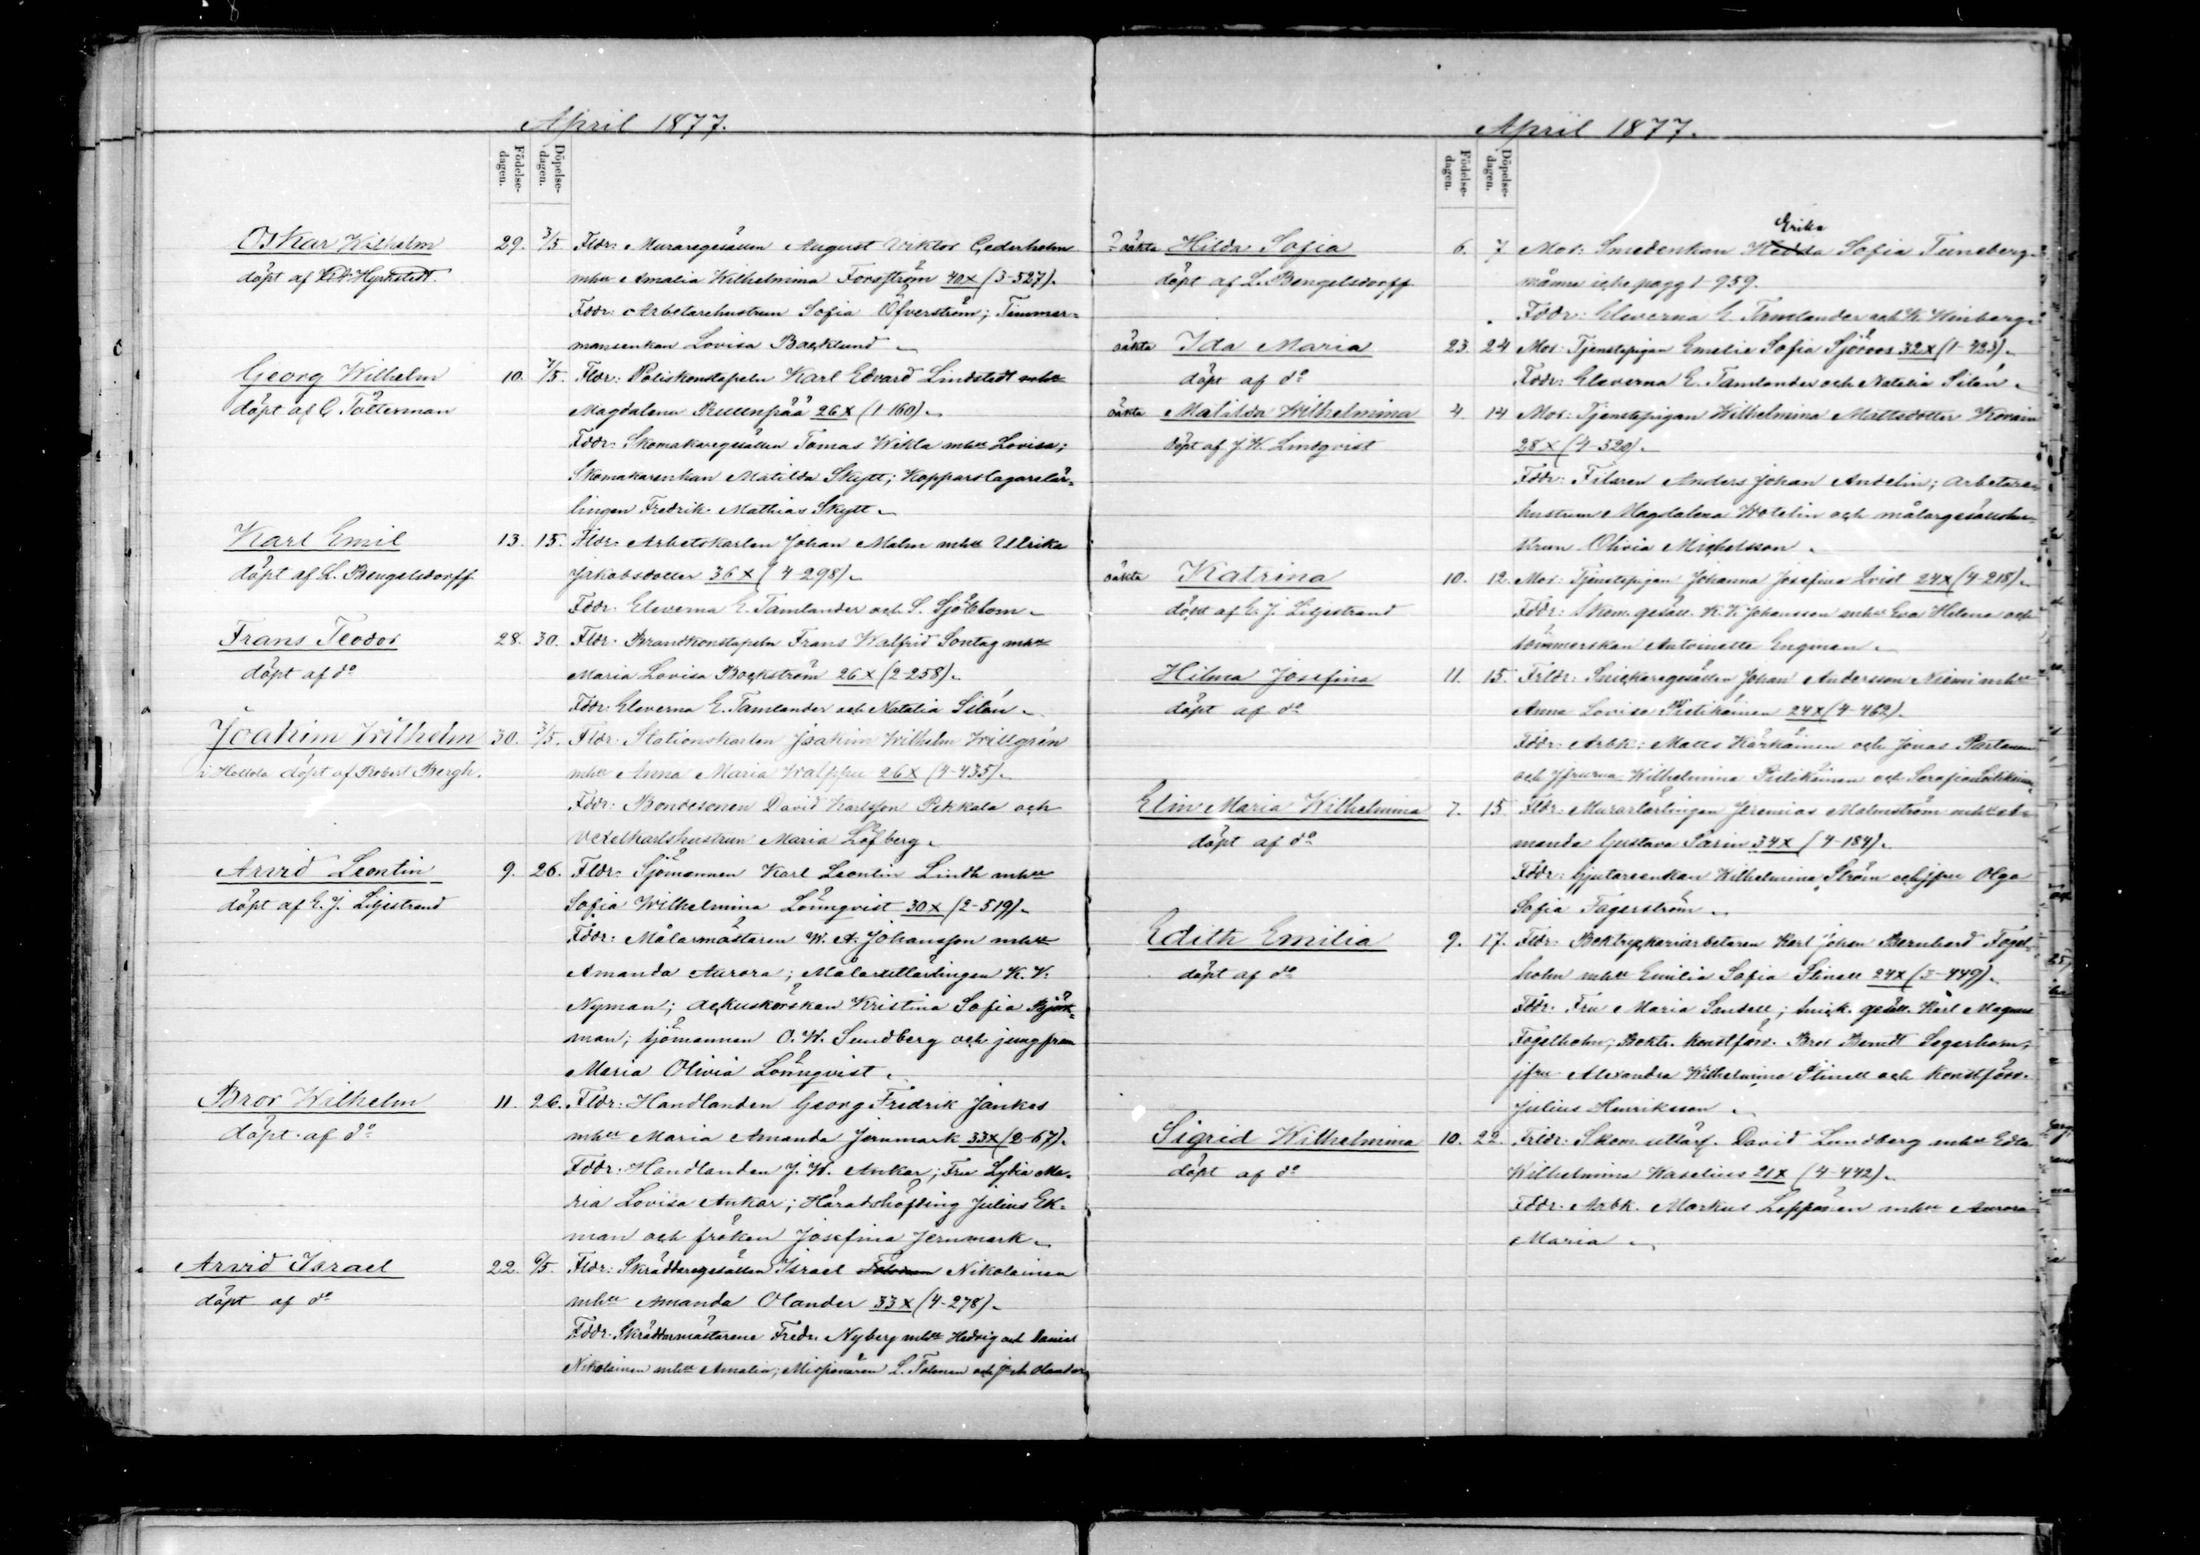 April 1877.
Födelse-
dagen.
Döpelse-
dagen.
Oskar Wilhelm 29. 3/5. Fldr: Muraregesällen August Viktor Cederholm
döpt af Hjeltstedt. mhu Amalia Wilhelmina Forsström 40x (3-527).
Fddr: Arbetarehustrun Sofia Öfverström; Timmer-
mansenkan Lovisa Backlund
Georg Wilhelm 10. 7/5. Fldr: Poliskonstapeln Karl Edvard Lindstedt mhu
döpt af G. Tötterman Magdalena 26x (1-160).
Fddr: Skomakaregesällen Tomas Wikla mhu Lovisa;
Skomakarenkan Matilda Skytt; Kopparslagarelär-
lingen Fredrik Mathias Skytt
Karl Emil 13. 15. Fldr: Arbetskarlen Johan Malm mhu Ulrika
döpt af L. Bengelsdorff. Jakobsdotter 36x (4-298).
Fddr: Eleverna E. Tamlander och S. Sjöblom.
Frans Teodor 28. 30. Fldr: Brandkonstapeln Frans Walfrid Sontag mhu
döpt af d:o Maria Lovisa Backström 26x (2-258).
Fddr: Eleverna E. Tamlander och Natalia Silén.
Joakim Wilhelm 30. 3/5. Fldr: Stationskarlen Joakim Wilhelm Willgrén
i Hollola döpt af Robert Bergh. mhu Anna Maria Walppu 26x (4-435).
Fddr: Bondesonen David Karlsson Pekkala och
vexelkarlshustrun Maria Löfberg.
Arvid Leontin 9. 26. Fldr: Sjömannen Karl Leontin Lindh mhu
döpt af E. J. Liljestrand Sofia Wilhelmina Lönnqvist 30x (2-519).
Fddr: Målarmästaren W. A. Johansson mhu
Amanda Aurora; Målarelärlingen K. V.
Nyman; ackuskörskan Kristina Sofia Björk-
man; sjömannen O. W. Sundberg och jungfrun
Maria Olivia Lönnqvist.
Bror Wilhelm 11. 26. Fldr: Handlanden Georg Fredrik Jankes
döpt af d:o mhu Maria Amanda Jernmark 33x (2-67).
Fddr: Handlanden J. W. Ankar; Fru Lydia Ma-
ria Lovisa Ankar; Häradshöfding Julius Ek-
man och fröken Josefina Jernmark.
Arvid Israel 22. 6/5. Fldr: Skräddaregesällen Israel Nikolainen
döpt af d:o mhu Amanda Olander 33x (4-278).
Fddr: Skräddarmästarene Fredr. Nyberg mhu Hedvig och Daniel
Nikolainen mhu Amalia; Missionären L. Tolonen och Olander
April 1877.
Födelse-
dagen.
Döpelse-
dagen.
oäkta Hilda Sofia 6. 7 Mor: Smedenkan Hedda Erika Sofia Tuneberg
döpt af L. Bengelsdorff 1-959.
Fddr: Eleverna E. Tamlander och K. Winberg
oäkta Ida Maria 23. 24 Mor: Tjenstepigan Emelie Sofia Sjöroos 32x (1-423).
döpt af d:o Fddr: Eleverna E. Tamlander och Natalia Silén.
oäkta Matilda Wilhelmina 4. 14 Mor: Tjenstepigan Wilhelmina Mattsdotter
döpt af J. W. Lindqvist 28x (4-320).
Fddr: Filaren Anders Johan Andelin; arbetare-
hustrun Magdalena Hotelin och målargesällshu-
strun Olivia Michelsson.
oäkta Katrina 10. 12. Mor: Tjenstepigan Johanna Josefina Qvist 24x (4-218).
döpt af E. J. Liljestrand Fddr: Skom. gesäll. K. V. Johansson mhu Eva Helena och
sömmerskan Antoinette Engman.
Hilma Josefina 11. 15. Frldr: Snickaregesällen Johan Andersson Niemi mhu
döpt af d:o Anna Lovisa Pietikäinen 24x (4-462).
Fddr: Arbk: Matts Kärkäinen och Jonas Partanen
och jfrurna Wilhelmina Pietikäinen och Serafia
Elin Maria Wilhelmina 7. 15 Fldr: Murarlärlingen Jeremias Malmström mhu A-
döpt af d:o manda Gustava Sarin 34x (4-184).
Fddr: Gjutarenkan Wilhelmina Ström och jfru Olga
Sofia Fagerström.
Edith Emilia 9. 17. Fldr: Boktryckeriarbetaren Karl Johan Bernhard Fogel-
döpt af d:o holm mhu Emilia Sofia Stinell 24x (3-449).
Fddr: Fru Maria Sandell; snick. gesäll. Karl Magnus
Fogelholm; Boktr. konstförv. Bror Berndt Segerholm;
jfru Alexandra Wilhelmina Stinell och konstförv.
Julius Henriksson.
Sigrid Wilhelmina 10. 22. Frldr: Skom. utlärl. David Lundberg mhu Edla
döpt af d:o Wilhelmina Waselius 21x (4-442).
Fddr: Arbk. Markus Leppänen mhu Aurora
Maria.